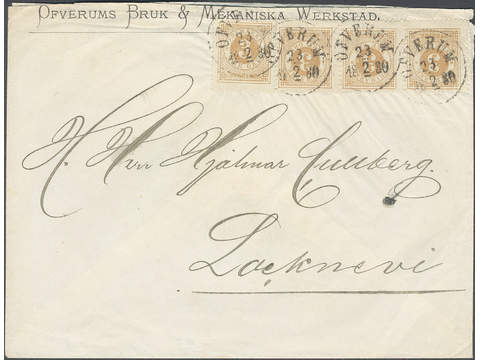 OFVERUMS BRUK & MEKANISKA WERKSTAD.
OFVERUM OFVERUM OFVERUM OFVERUM
23 23 23 23
2 80 2 80 2 80 2 80
H. Herr Hjalmar Cullberg.
Locknevi